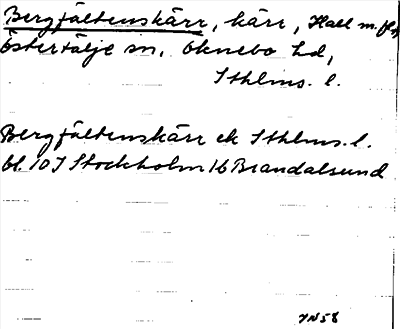 Bergfältenskärr, kärr, Hall m.fl.,
Östertälje sn, Öknebo hd,
Sthlms. l.
Bergfältenskärr ek Sthlms. l.
bl. 10 I Stockholm 16 Brandalsund
JN58